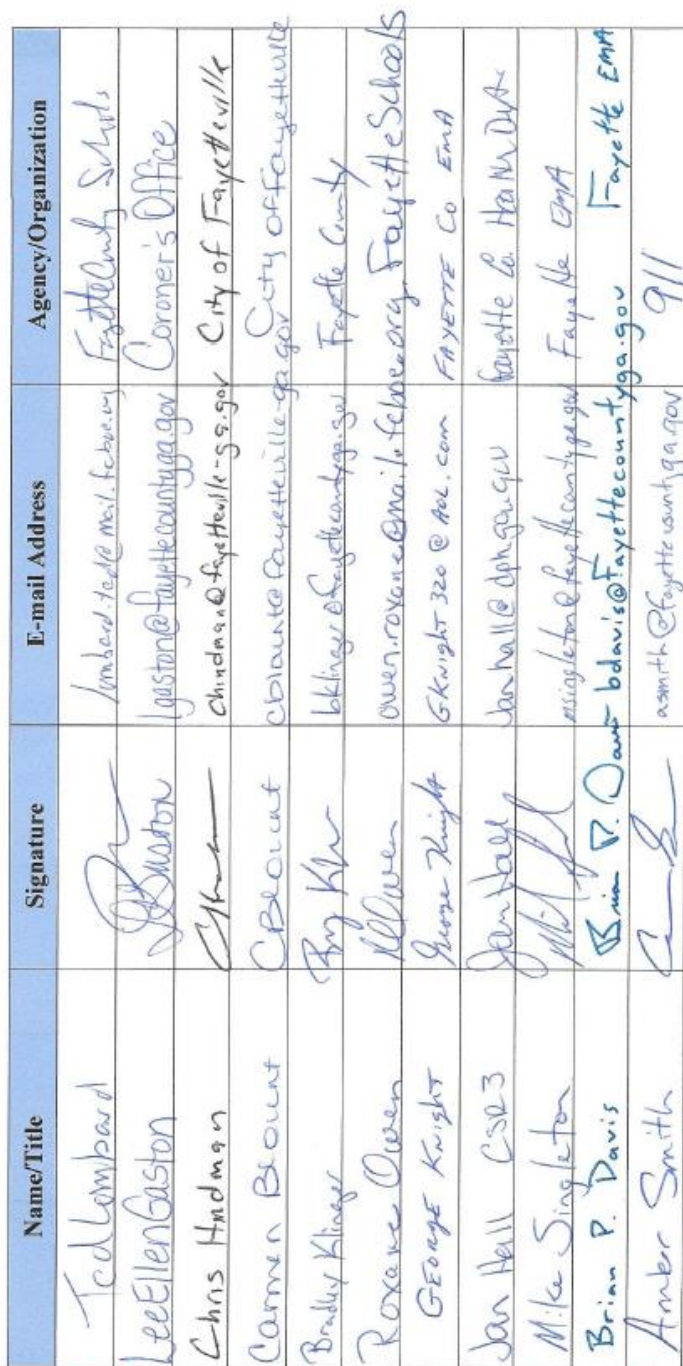 Name/Title Signature E-mail Address Agency/Organization
Ted Lombard lombard.ted@mail.fcboe.org Fayette County Schools
Lee Ellen Gaston LEGaston lgaston@fayettecountyga.gov Coroner's Office
Chris Hindman chindman@fayetteville-ga.gov City of Fayetteville
Carmen Blount CBlount cblount@fayetteville-ga.gov City of Fayetteville
Bradley Klinger bklinger@fayettecountyga.gov Fayette County
Roxane Owen ROwen owen.roxane@mail.fcboe.org Fayette Schools
GEORGE KNIGHT George Knight GKnight320@AOL.com FAYETTE CO EMA
Jan Hall CSR3 Jan Hall Jan.hall@dph.ga.gov Fayette Co. Health Dept.
Mike Singleton msingleton@fayettecountyga.gov Fayette EMA
Brian P. Davis Brian P. Davis bdavis@fayettecountyga.gov Fayette EMA
Amber Smith asmith@fayettecountyga.gov 911